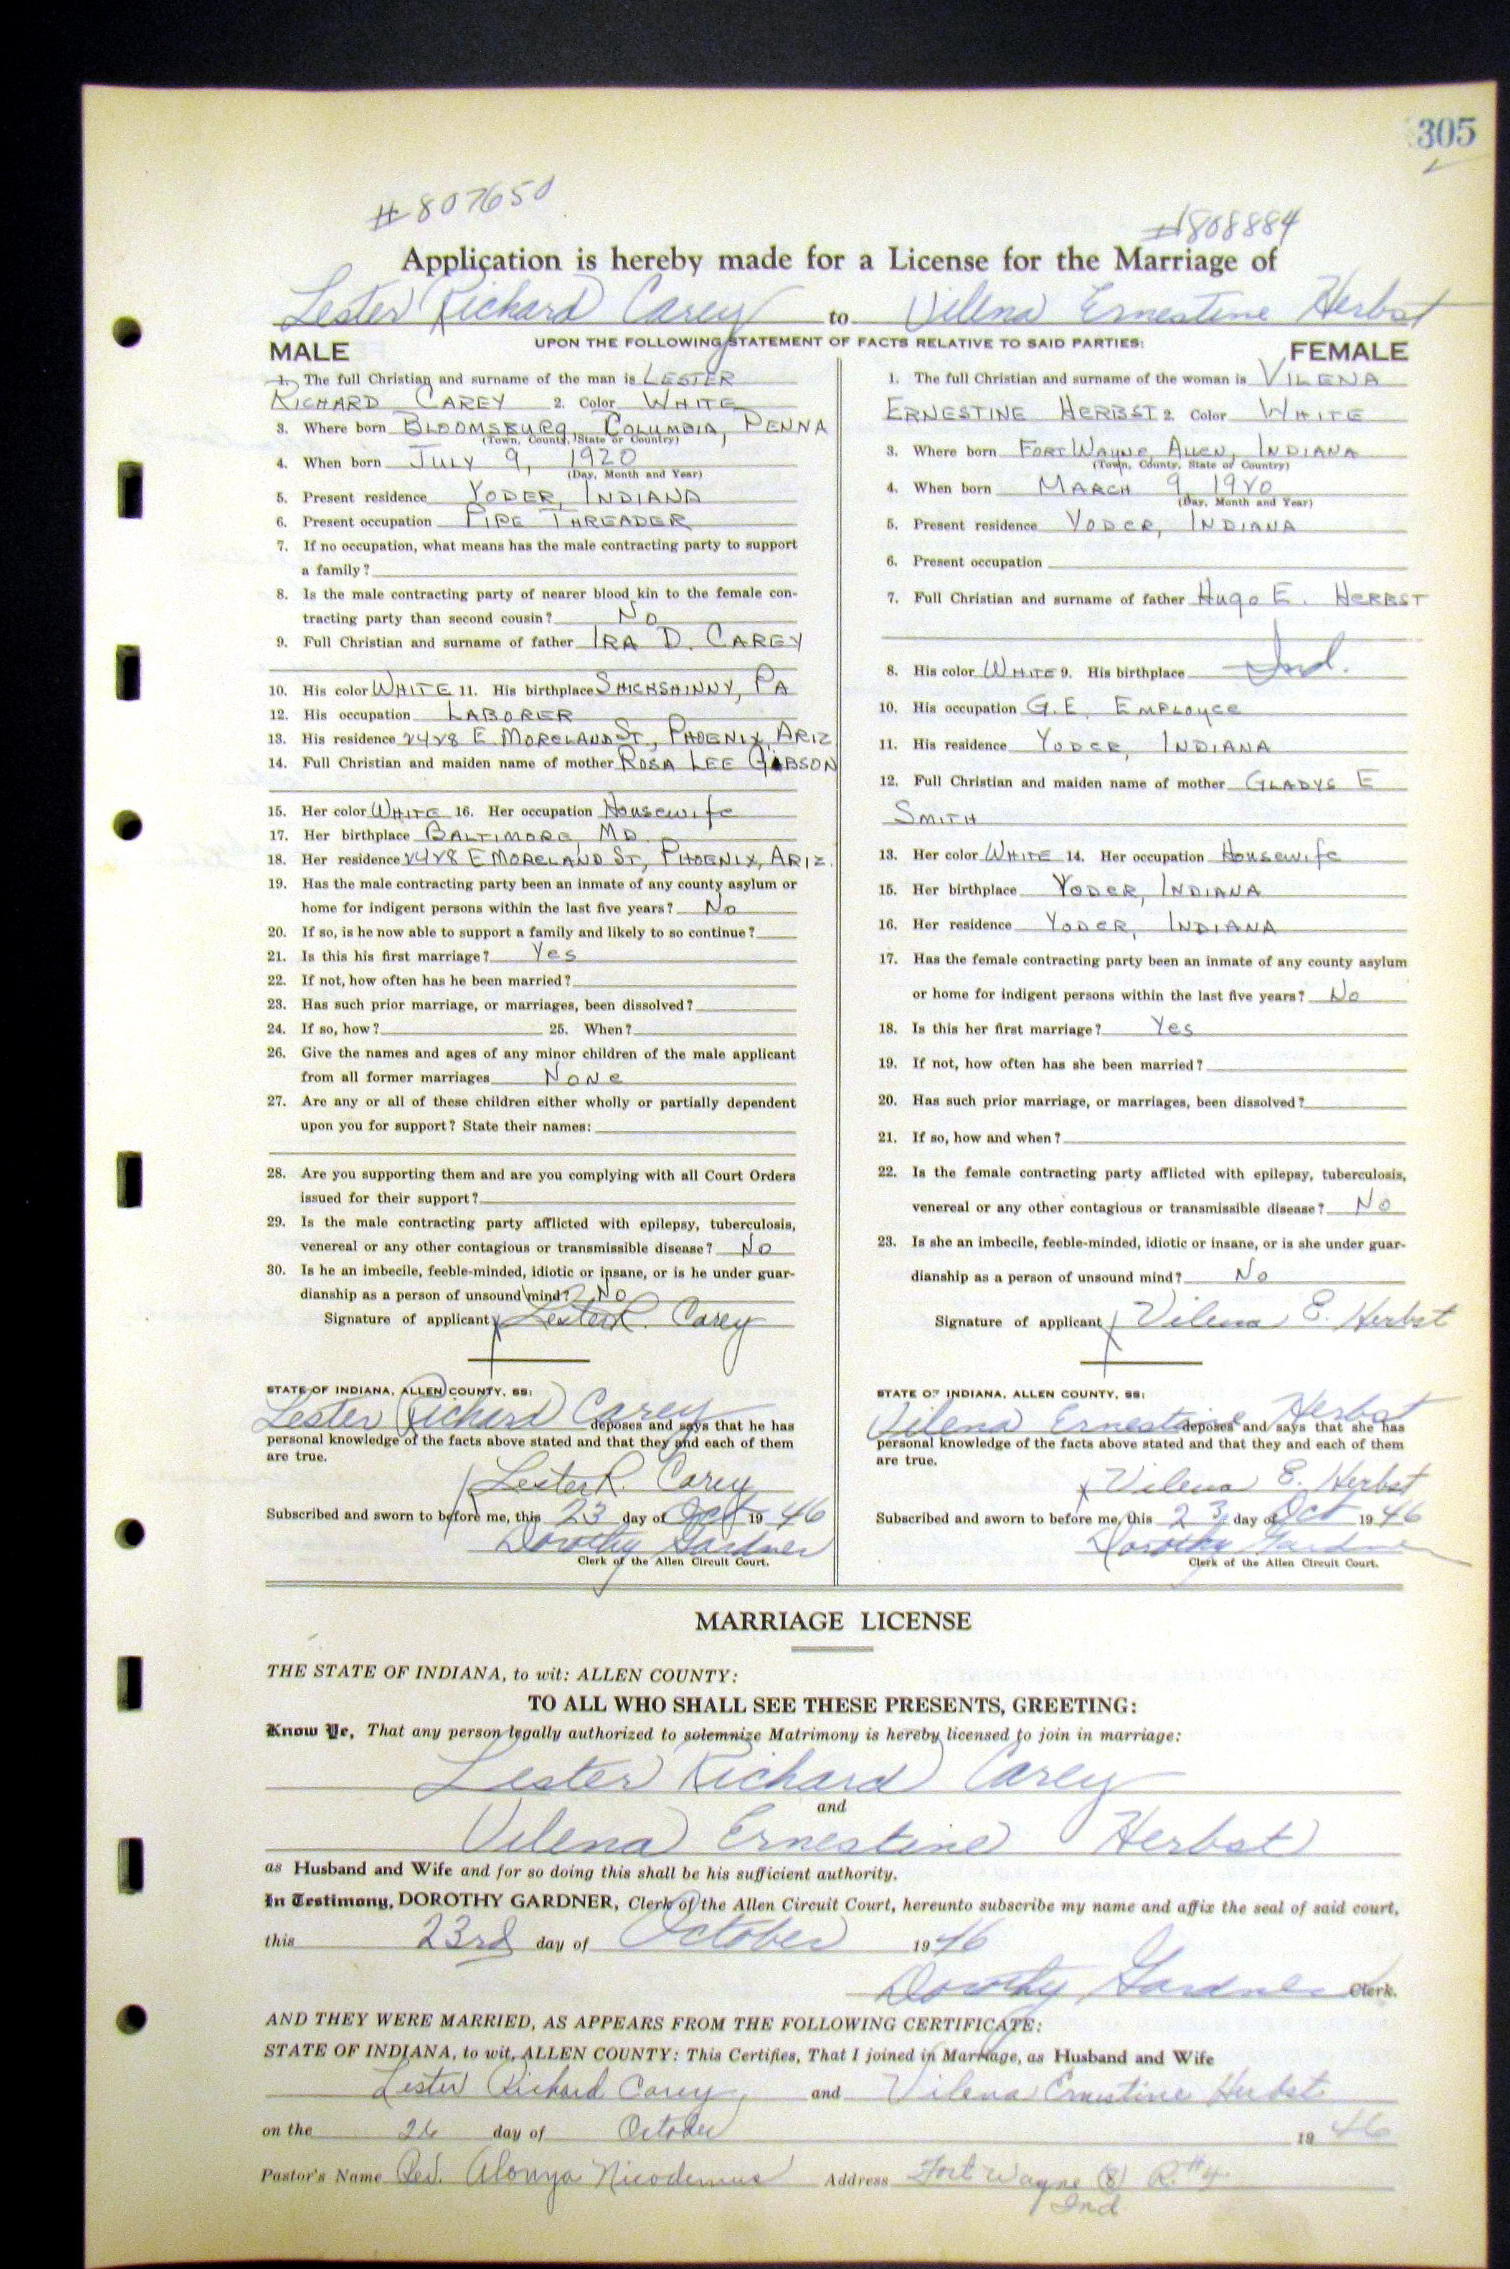 305
#807650
#808884
Application is hereby made for a License for the Marriage of
Lester Richard Carey to Vilena Ernestine Herbst
UPON THE FOLLOWING STATEMENT OF FACTS RELATIVE TO SAID PARTIES:
MALE
1. The full Christian and surname of the man is LESTER
RICHARD CAREY 2. Color WHITE
3. Where born BLOOMSBURG, COLUMBIA, PENNA
(Town, County, State or Country)
4. When born JULY 9, 1920
(Day, Month and Year)
5. Present residence YODER, INDIANA
6. Present occupation PIPE THREADER
7. If no occupation, what means has the male contracting party to support
a family?
8. Is the male contracting party of nearer blood kin to the female con-
tracting party than second cousin? No
9. Full Christian and surname of father IRA D. CAREY
10. His color WHITE 11. His birthplace SHICKSHINNY, PA
12. His occupation LABORER
13. His residence 2428 E. MORELAND ST., PHOENIX, ARIZ
14. Full Christian and maiden name of mother ROSA LEE GIBSON
15. Her color WHITE 16. Her occupation Housewife
17. Her birthplace BALTIMORE, MD
18. Her residence 2428 E MORELAND ST, PHOENIX, ARIZ.
19. Has the male contracting party been an inmate of any county asylum or
home for indigent persons within the last five years? No
20. If so, is he now able to support a family and likely to so continue?
21. Is this his first marriage? Yes
22. If not, how often has he been married?
23. Has such prior marriage, or marriages, been dissolved?
24. If so, how? 25. When?
26. Give the names and ages of any minor children of the male applicant
from all former marriages NONE
27. Are any or all of these children either wholly or partially dependent
upon you for support? State their names:
28. Are you supporting them and are you complying with all Court Orders
issued for their support?
29. Is the male contracting party afflicted with epilepsy, tuberculosis,
venereal or any other contagious or transmissible disease? No
30. Is he an imbecile, feeble-minded, idiotic or insane, or is he under guar-
dianship as a person of unsound mind? No
Signature of applicant x Lester R. Carey
STATE OF INDIANA, ALLEN COUNTY, SS:
Lester Richard Carey deposes and says that he has
personal knowledge of the facts above stated and that they and each of them
are true.
Lester R. Carey
Subscribed and sworn to before me, this 23 day of Oct 19 46
Dorothy Gardner
Clerk of the Allen Circuit Court.
FEMALE
1. The full Christian and surname of the woman is VILENA
ERNESTINE HERBST 2. Color WHITE
3. Where born FORT WAYNE, ALLEN, INDIANA
(Town, County, State or Country)
4. When born MARCH 9, 1920
(Day, Month and Year)
5. Present residence YODER, INDIANA
6. Present occupation
7. Full Christian and surname of father Hugo E. HERBST
8. His color WHITE 9. His birthplace Ind.
10. His occupation G.E. EMPLOYEE
11. His residence YODER, INDIANA
12. Full Christian and maiden name of mother GLADYS E
SMITH
13. Her color WHITE 14. Her occupation Housewife
15. Her birthplace YODER, INDIANA
16. Her residence YODER, INDIANA
17. Has the female contracting party been an inmate of any county asylum
or home for indigent persons within the last five years? No
18. Is this her first marriage? Yes
19. If not, how often has she been married?
20. Has such prior marriage, or marriages, been dissolved?
21. If so, how and when?
22. Is the female contracting party afflicted with epilepsy, tuberculosis,
venereal or any other contagious or transmissible disease? No
23. Is she an imbecile, feeble-minded, idiotic or insane, or is she under guar-
dianship as a person of unsound mind? No
Signature of applicant x Vilena E. Herbst
STATE OF INDIANA, ALLEN COUNTY, SS:
Vilena Ernestine Herbst deposes and says that she has
personal knowledge of the facts above stated and that they and each of them
are true.
x Vilena E. Herbst
Subscribed and sworn to before me, this 23 day of Oct 19 46
Dorothy Gardner
Clerk of the Allen Circuit Court.
MARRIAGE LICENSE
THE STATE OF INDIANA, to wit: ALLEN COUNTY:
TO ALL WHO SHALL SEE THESE PRESENTS, GREETING:
Know Ye, That any person legally authorized to solemnize Matrimony is hereby licensed to join in marriage:
Lester Richard Carey
and
Vilena Ernestine Herbst
as Husband and Wife and for so doing this shall be his sufficient authority.
In Testimony, DOROTHY GARDNER, Clerk of the Allen Circuit Court, hereunto subscribe my name and affix the seal of said court,
this 23rd day of October 19 46
Dorothy Gardner Clerk.
AND THEY WERE MARRIED, AS APPEARS FROM THE FOLLOWING CERTIFICATE:
STATE OF INDIANA, to wit, ALLEN COUNTY: This Certifies, That I joined in Marriage, as Husband and Wife
Lester Richard Carey and Vilena Ernestine Herbst
on the 26 day of October 19 46
Pastor's Name Rev. Alonya Nicodemus Address Fort Wayne (8) R. #4
Ind